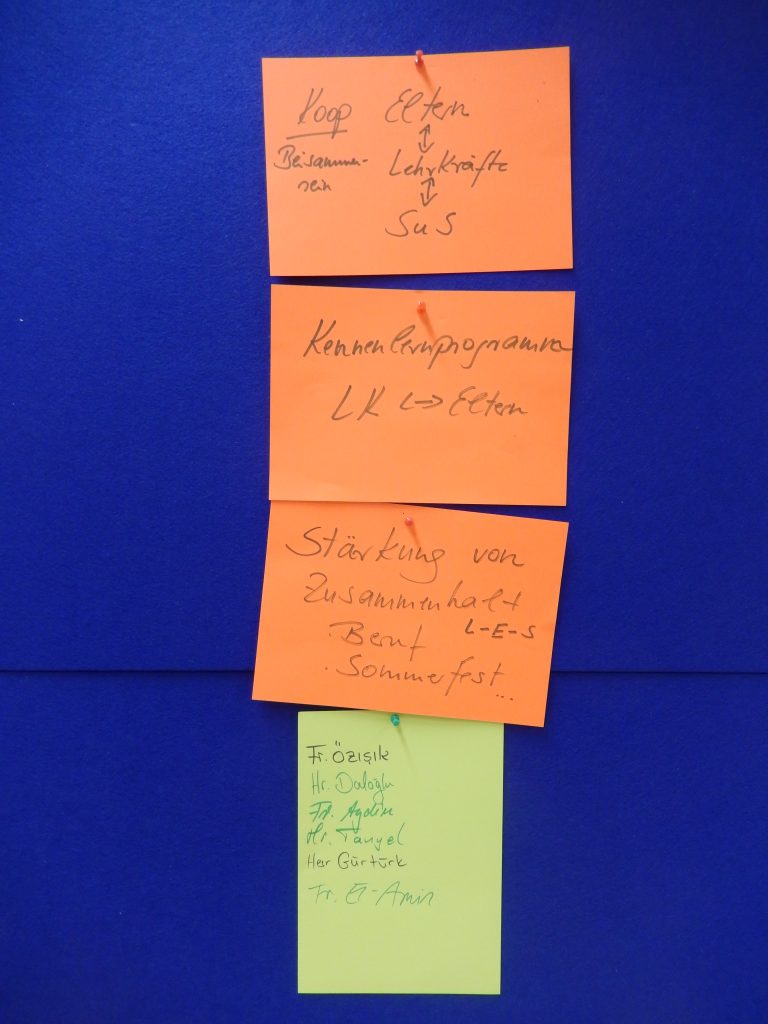 Koop Eltern
↕
Beisammen- Lehrkräfte
sein
↕
SuS
Kennenlernprogramm
LK <-> Eltern
Stärkung von
Zusammenhalt
L-E-S
· Beruf
· Sommerfest...
Fr. Özışık
Hr. Daloğlu
Fr. Aydin
Hr. Tanyel
Herr Gürtürk
Fr. El-Amin